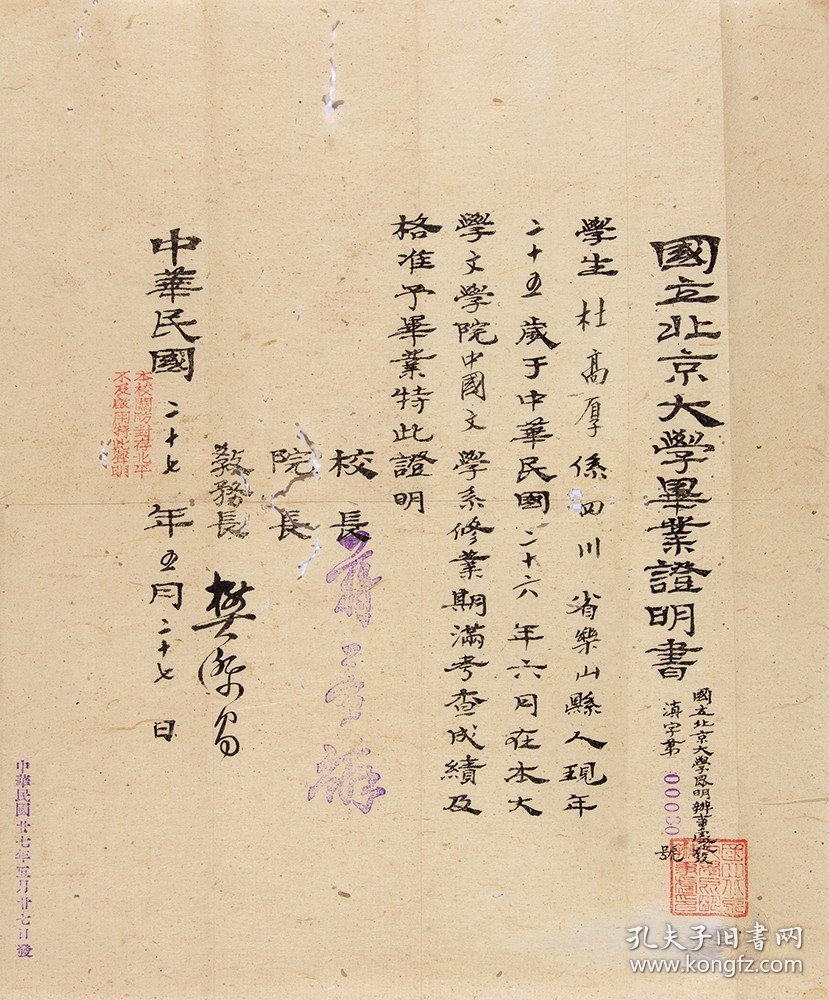 國立北京大學畢業證明書
國立北京大學昆明辦事處發
滇字第00030號
學生杜高厚係四川省樂山縣人現年
二十五歲于中華民國二十六年六月在本大
學文學院中國文學系修業期滿考查成績及
格准予畢業特此證明
校長
院長
教務長樊際昌
中華民國二十七年五月二十七日
本校關防封存北平
不及啟用特此聲明
中華民國廿七年五月廿七日發
孔夫子旧书网
www.kongfz.com